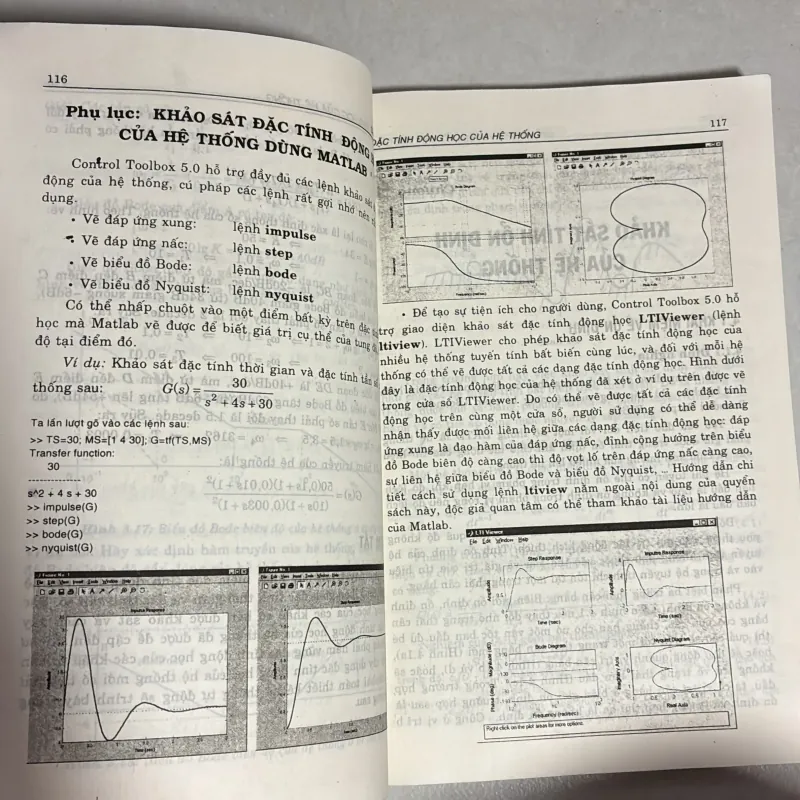 116
Phụ lục: KHẢO SÁT ĐẶC TÍNH ĐỘNG
CỦA HỆ THỐNG DÙNG MATLAB
Control Toolbox 5.0 hỗ trợ đầy đủ các lệnh khảo sát
động của hệ thống, cú pháp các lệnh rất gợi nhớ nên
dụng.
• Vẽ đáp ứng xung: lệnh impulse
• Vẽ đáp ứng nấc: lệnh step
• Vẽ biểu đồ Bode: lệnh bode
• Vẽ biểu đồ Nyquist: lệnh nyquist
Có thể nhấp chuột vào một điểm bất kỳ trên đặc
học mà Matlab vẽ được để biết giá trị cụ thể của tung
độ tại điểm đó.
Ví dụ: Khảo sát đặc tính thời gian và đặc tính tần số
thống sau: G(s) = 30 / s² + 4s + 30
Ta lần lượt gõ vào các lệnh sau:
>> TS=30; MS=[1 4 30]; G=tf(TS,MS)
Transfer function:
30
--------------
s^2 + 4 s + 30
>> impulse(G)
>> step(G)
>> bode(G)
>> nyquist(G)
Impulse Response
Time (sec)
Time (sec)
ĐẶC TÍNH ĐỘNG HỌC CỦA HỆ THỐNG 117
Bode Diagram
Nyquist Diagram
Frequency (rad/sec)
Real Axis
• Để tạo sự tiện ích cho người dùng, Control Toolbox 5.0 hỗ
trợ giao diện khảo sát đặc tính động học LTIViewer (lệnh
ltiview). LTIViewer cho phép khảo sát đặc tính động học của
nhiều hệ thống tuyến tính bất biến cùng lúc, và đối với mỗi hệ
thống có thể vẽ được tất cả các dạng đặc tính động học. Hình dưới
đây là đặc tính động học của hệ thống đã xét ở ví dụ trên được vẽ
trong cửa sổ LTIViewer. Do có thể vẽ được tất cả các đặc tính
động học trên cùng một cửa sổ, người sử dụng có thể dễ dàng
nhận thấy được mối liên hệ giữa các dạng đặc tính động học: đáp
ứng xung là đạo hàm của đáp ứng nấc, đỉnh cộng hưởng trên biểu
đồ Bode biên độ càng cao thì độ vọt lố trên đáp ứng nấc càng cao,
sự liên hệ giữa biểu đồ Bode và biểu đồ Nyquist, ... Hướng dẫn chi
tiết cách sử dụng lệnh ltiview nằm ngoài nội dung của quyển
sách này, độc giả quan tâm có thể tham khảo tài liệu hướng dẫn
của Matlab.
LTI Viewer
File Edit Window Help
Step Response
Impulse Response
Amplitude
Time (sec)
Time (sec)
Bode Diagram
Nyquist Diagram
Phase (deg) Magnitude (dB)
Imaginary Axis
Frequency (rad/sec)
Real Axis
Right-click on the plot areas for more options.